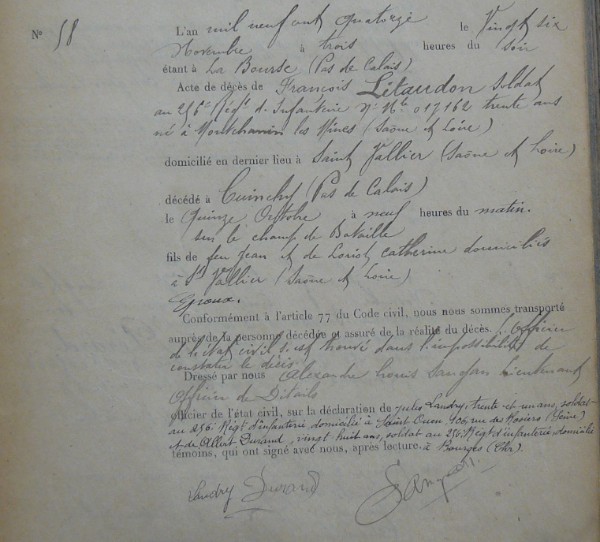 N° 58
L'an mil neuf cent quatorze le Vingt six
Novembre à trois heures du soir
étant à La Bourse (Pas de Calais)
Acte de décès de François Litaudon soldat
au 256e Régt d'Infanterie N° Mle 017162 trente ans
né à Montchanin les Mines (Saône et Loire)
domicilié en dernier lieu à Saint Vallier (Saône et Loire)
décédé à Cuinchy (Pas de Calais)
le quinze Octobre à neuf heures du matin.
sur le champ de Bataille
fils de feu Jean et de Loriot Catherine domiciliés
à St Vallier (Saône et Loire)
Epoux.
Conformément à l'article 77 du Code civil, nous nous sommes transporté
auprès de la personne décédée et assuré de la réalité du décès. L'officier
de l'état civil s'est trouvé dans l'impossibilité de
constater le décès
Dressé par nous Alexandre Louis lieutenant
Officier de Détails
officier de l'état civil, sur la déclaration de Jules Landry, trente et un ans, soldat
au 256. Régt d'infanterie domicilié à Saint Ouen 106 rue des Rosiers (Seine)
et de Albert Durand, vingt huit ans, soldat au 256. Régt d'infanterie domicilié
témoins, qui ont signé avec nous, après lecture. à Bourges (Cher)
Landry Durand